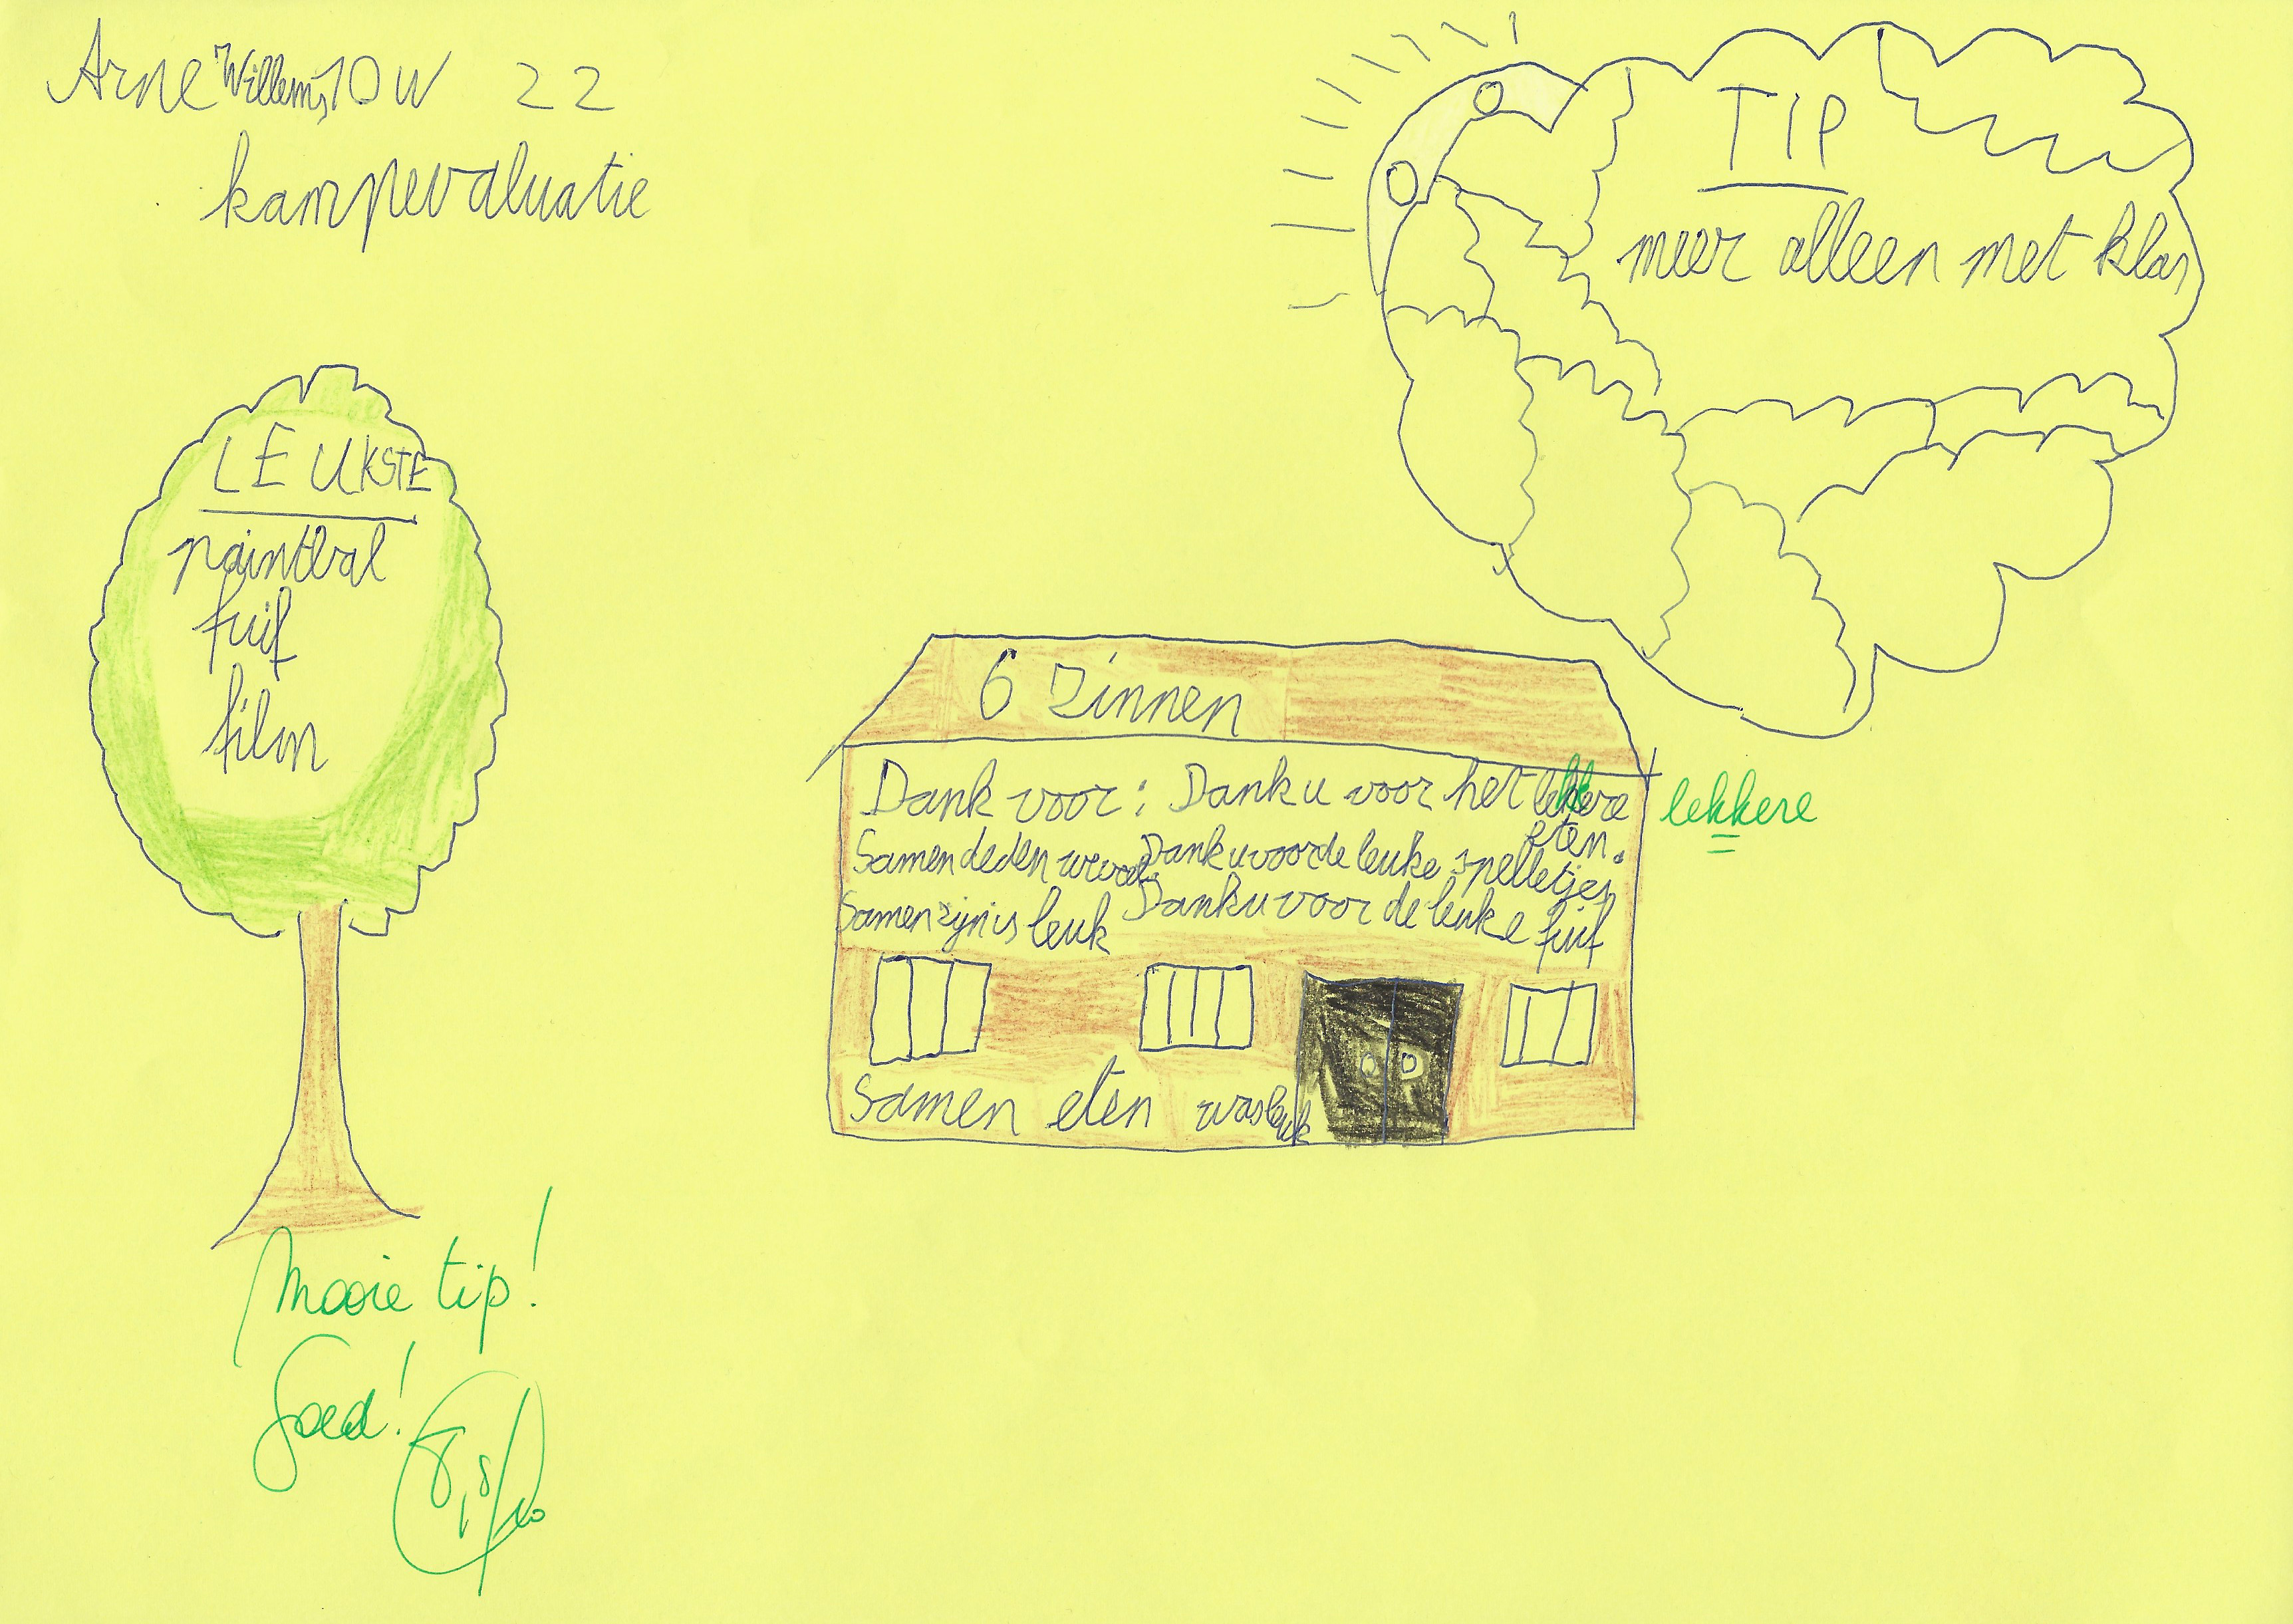 Arne Willems 10 W 22
kampevaluatie
TIP
meer alleen met klas
LEUKSTE
paintbal
fuif
film
6 zinnen
Dank voor: Dank u voor het lekkere
eten.
lekkere
Samen deden we veel Dank u voor de leuke spelletjes
Samen zijn is leuk Dank u voor de leuke fuif
Samen eten was leuk
Mooie tip!
Goed!
8,8/10